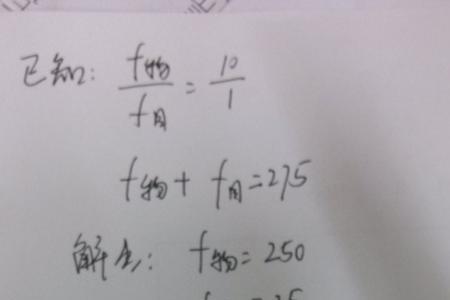 已知: f物/f目 = 10/1
f物 + f目 = 275
解出: f物 = 250